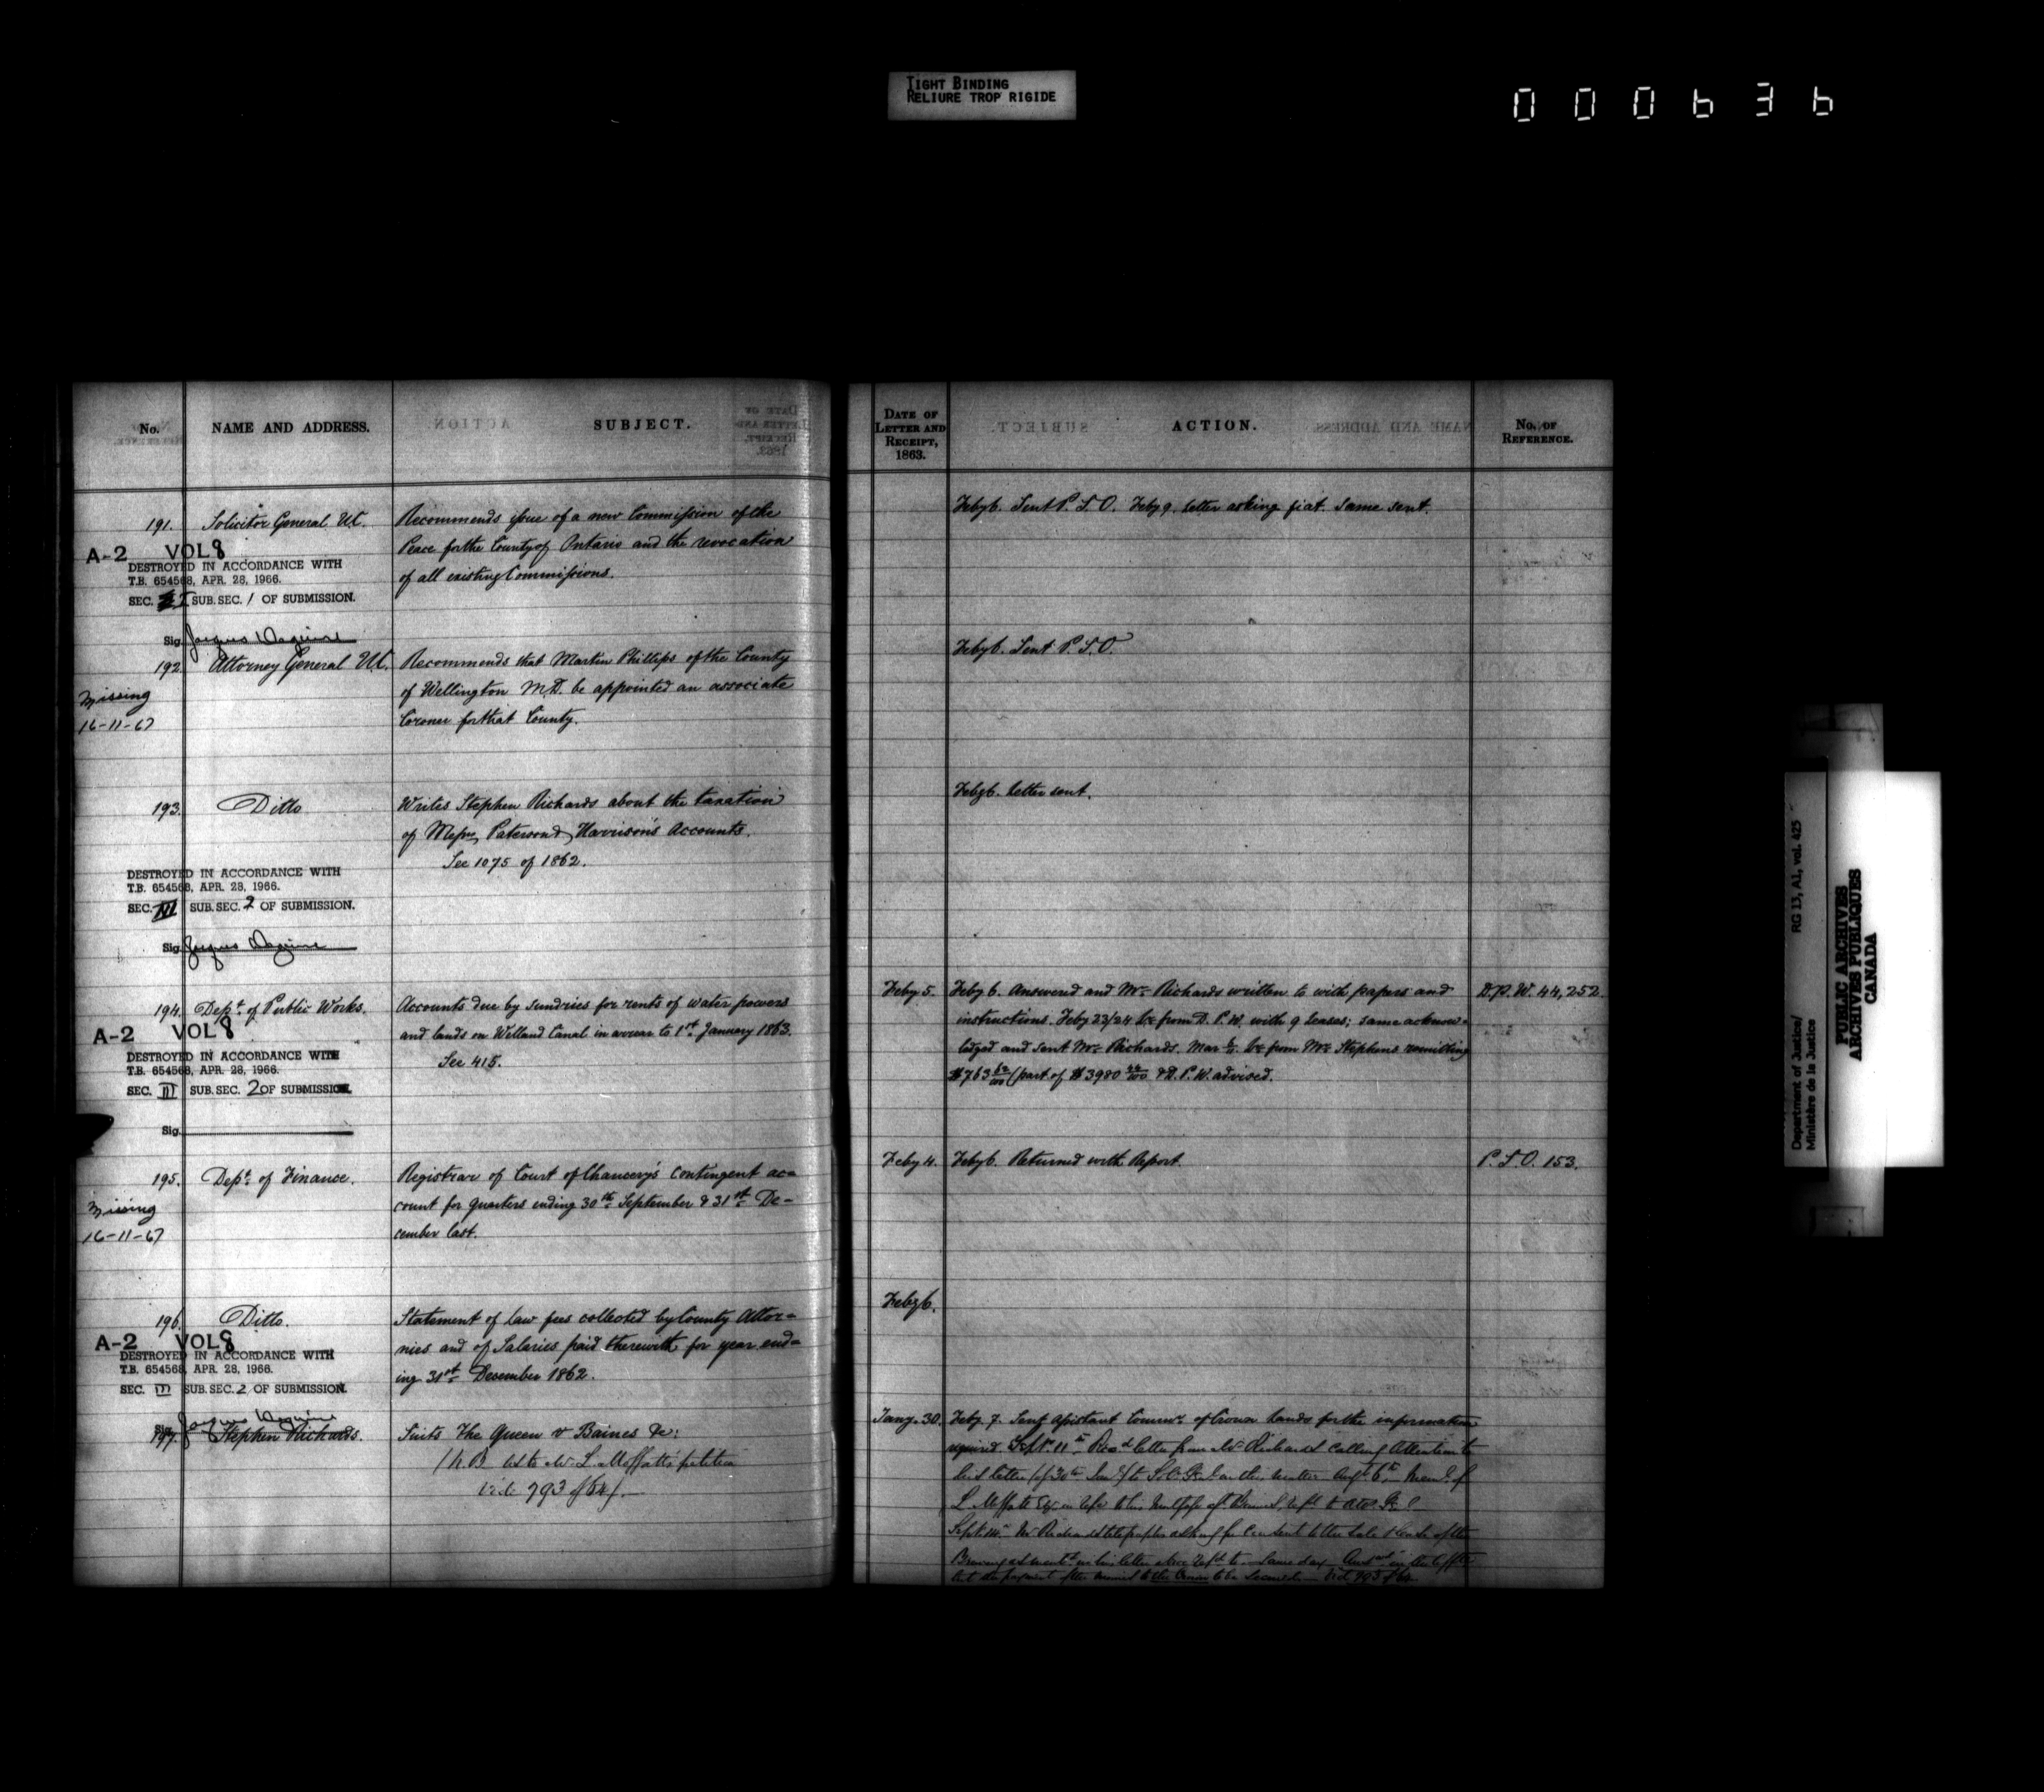 TIGHT BINDING
RELIURE TROP RIGIDE
000636
No. NAME AND ADDRESS. SUBJECT.
191. Solicitor General U.C. Recommends issue of a new Commission of the
Peace for the County of Ontario and the revocation
of all existing Commissions.
A-2 VOL 8
DESTROYED IN ACCORDANCE WITH
T.B. 654568, APR. 28, 1966.
SEC. I SUB. SEC. 1 OF SUBMISSION.
Sig.
192. Attorney General U.C. Recommends that Martin Phillips of the County
of Wellington M.D. be appointed an associate
Coroner for that County.
Missing
16-11-67
193. Ditto Writes Stephen Richards about the taxation
of Messrs Paterson & Harrison's Accounts.
See 1075 of 1862.
DESTROYED IN ACCORDANCE WITH
T.B. 654568, APR. 28, 1966.
SEC. III SUB. SEC. 2 OF SUBMISSION.
Sig.
194. Dept. of Public Works. Accounts due by sundries for rents of water powers
and lands on Welland Canal in arrear to 1st January 1863.
See 415.
A-2 VOL 8
DESTROYED IN ACCORDANCE WITH
T.B. 654568, APR. 28, 1966.
SEC. III SUB. SEC. 2 OF SUBMISSION.
Sig.
195. Dept. of Finance. Registrar of Court of Chancery's contingent ac=
count for quarters ending 30th September & 31st De-
cember last.
Missing
16-11-67
196. Ditto. Statement of law fees collected by County Attor=
nies and of Salaries paid therewith for year end=
ing 31st December 1862.
A-2 VOL 8
DESTROYED IN ACCORDANCE WITH
T.B. 654568, APR. 28, 1966.
SEC. III SUB. SEC. 2 OF SUBMISSION.
Sig.
197. Stephen Richards. Suits The Queen v Baines &c:
(N.B as to Mr L. Moffatt's petition
vide 793 of 64).—
DATE OF LETTER AND RECEIPT, 1863. ACTION. No. OF REFERENCE.
Feby 6. Sent P.S.O. Feby 9. letter asking fiat. Same sent.
Feby 6. Sent P.S.O.
Feby 6. letter sent.
Feby 5. Feby 6. Answered and Mr. Richards written to with papers and D.P.W. 44,252.
instructions. Feby 23/24 from D.P.W. with 9 leases; same acknow=
ledged and sent Mr. Richards. Mar from Mr. Stephens remitting
$763 62/100 (part of $3980 & D.P.W. advised.
Feby 4. Feby 6. Returned with Report. P.S.O. 153.
Feby 6.
Jany. 30. Feby. 7. Sent Assistant Commr. of Crown Lands for the information
required. Sept. 11th Recd letter from Mr Richards calling attention to
his letter (of 30th Jany) to matter Augt 6th
L. Moffatt
Sept. 14 Mr Richards asking for consent to the sale
his letter above Same day
the payment to the Crown to be secured — vid 793 of 64
Department of Justice/ RG 13, A1, vol. 425
Ministère de la Justice
PUBLIC ARCHIVES
ARCHIVES PUBLIQUES
CANADA